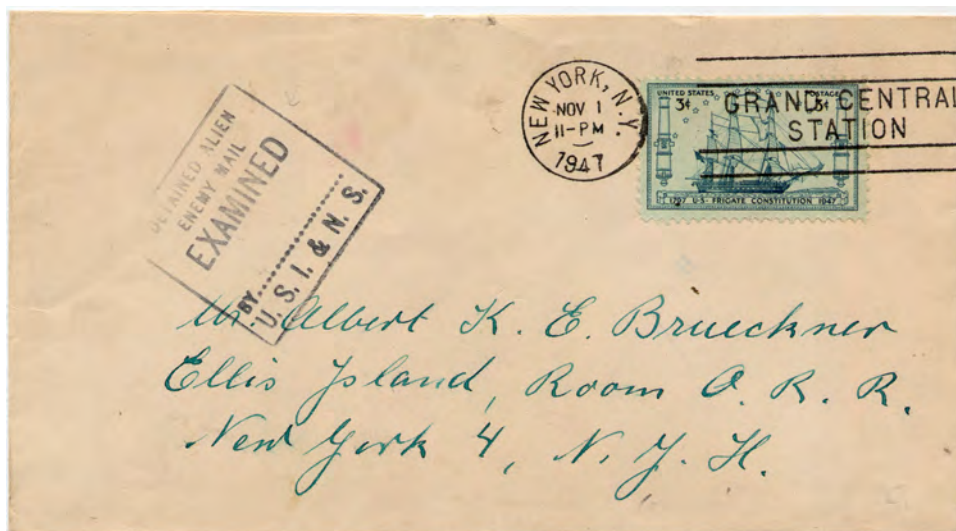 DETAINED ALIEN
ENEMY MAIL
EXAMINED
BY..............
U. S. I. & N. S.
NEW YORK, N.Y.
NOV 1
11-PM
1947
GRAND CENTRAL
STATION
UNITED STATES POSTAGE
3¢ 3¢
1797 U·S· FRIGATE CONSTITUTION 1947
Mr Albert K. E. Brueckner
Ellis Island, Room O. R. R.
New York 4, N. Y. H.